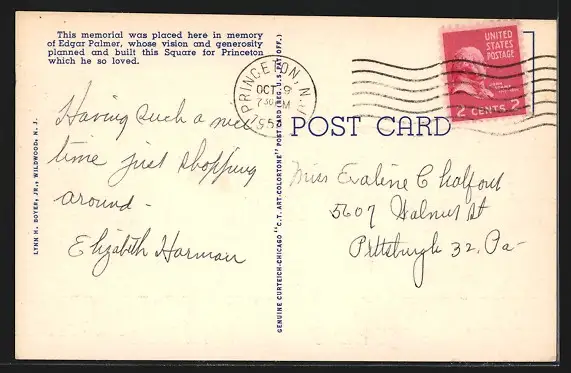 This memorial was placed here in memory
of Edgar Palmer, whose vision and generosity
planned and built this Square for Princeton
which he so loved.
LYNN H. BOYER, JR., WILDWOOD, N. J.
Having such a nice
time just shopping
around -
Elizabeth Harman
GENUINE CURTEICH-CHICAGO "C.T. ART-COLORTONE" POST CARD (REG. U.S. PAT. OFF.)
PRINCETON, N.J.
OCT 9
7 30 PM
UNITED
STATES
POSTAGE
2 CENTS 2
POST CARD
Miss Evaline Chalfout
5607 Walnut St
Pittsburgh 32, Pa-